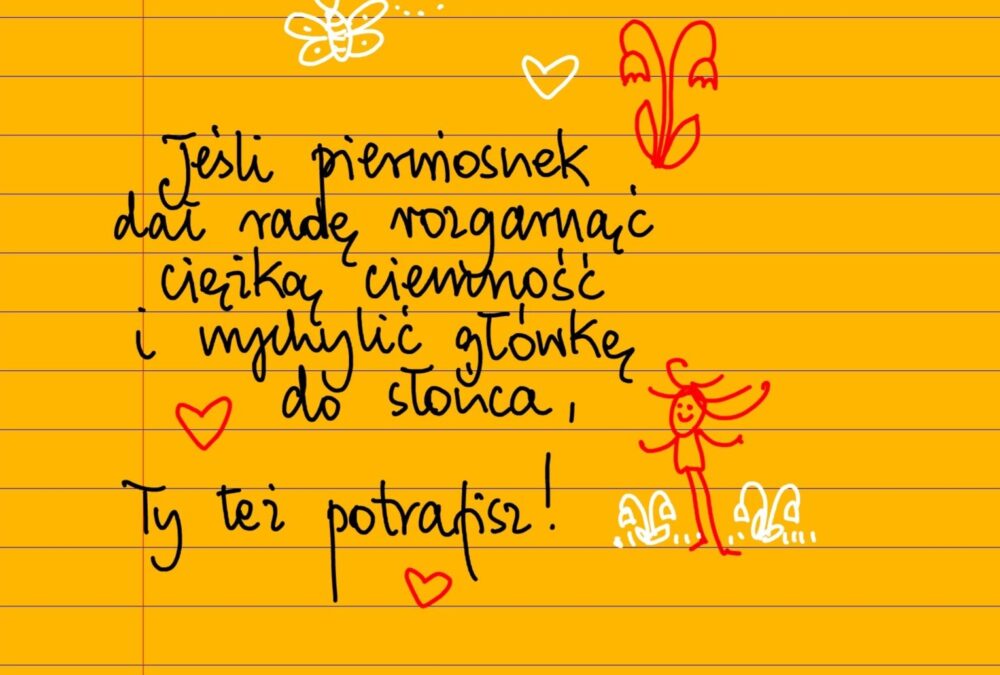 Jeśli pierwiosnek
dał radę rozgarnąć
ciężką ciemność
i wychylić główkę
do słońca,
Ty też potrafisz!